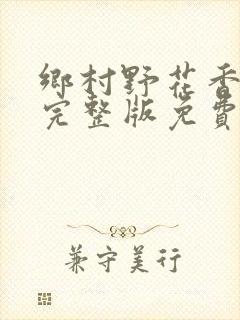 鄉村野花香
完整版免費
兼守美行